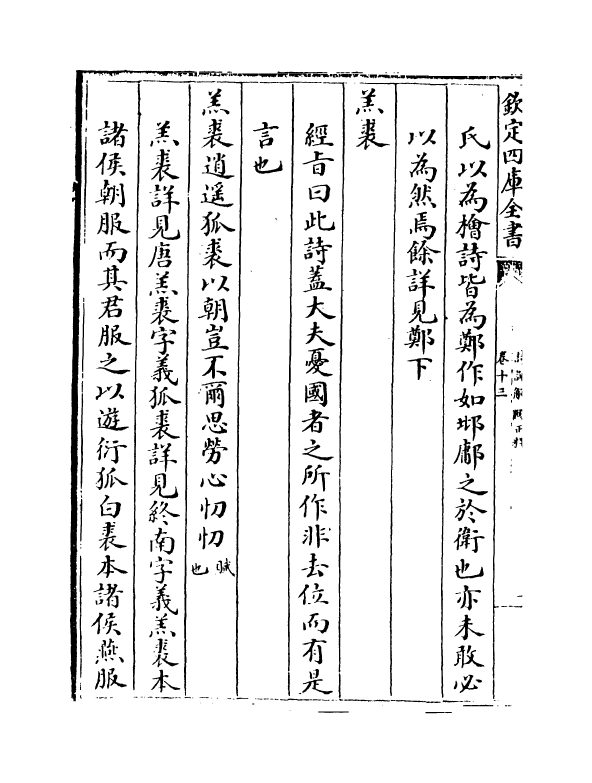 欽定四庫全書
卷十三
氏以為檜詩皆為鄭作如邶鄘之於衛也亦未敢必
以為然焉餘詳見鄭下
羔裘
經旨曰此詩蓋大夫憂國者之所作非去位而有是
言也
羔裘逍遥狐裘以朝豈不爾思勞心忉忉賦也
羔裘詳見唐羔裘字義狐裘詳見終南字義羔裘本
諸侯朝服而其君服之以遊衍狐白裘本諸侯燕服